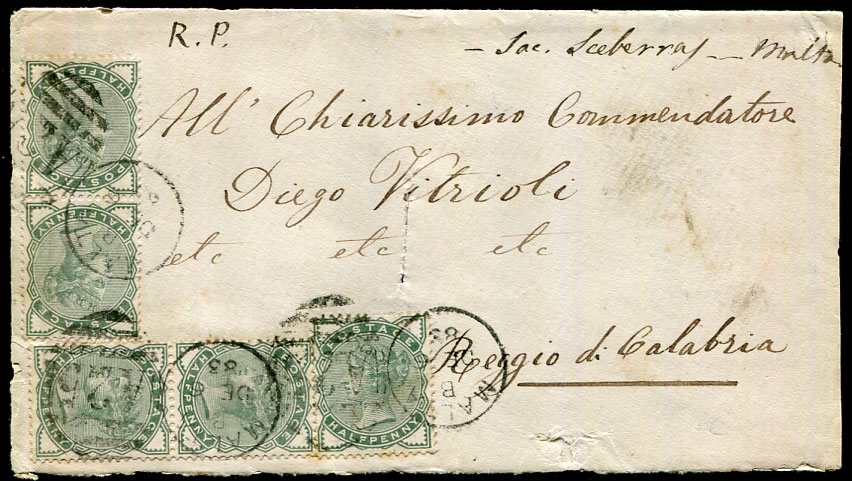 R. P.
– Sac. Sceberras – Malta
All' Chiarissimo Commendatore
Diego Vitrioli
etc etc etc
Reggio di Calabria
HALFPENNY
POSTAGE
HALFPENNY
POSTAGE
HALFPENNY
POSTAGE
HALFPENNY
POSTAGE
POSTAGE
HALFPENNY
MALTA
DE
MALTA
B
DE 6
83
MAL
B
83